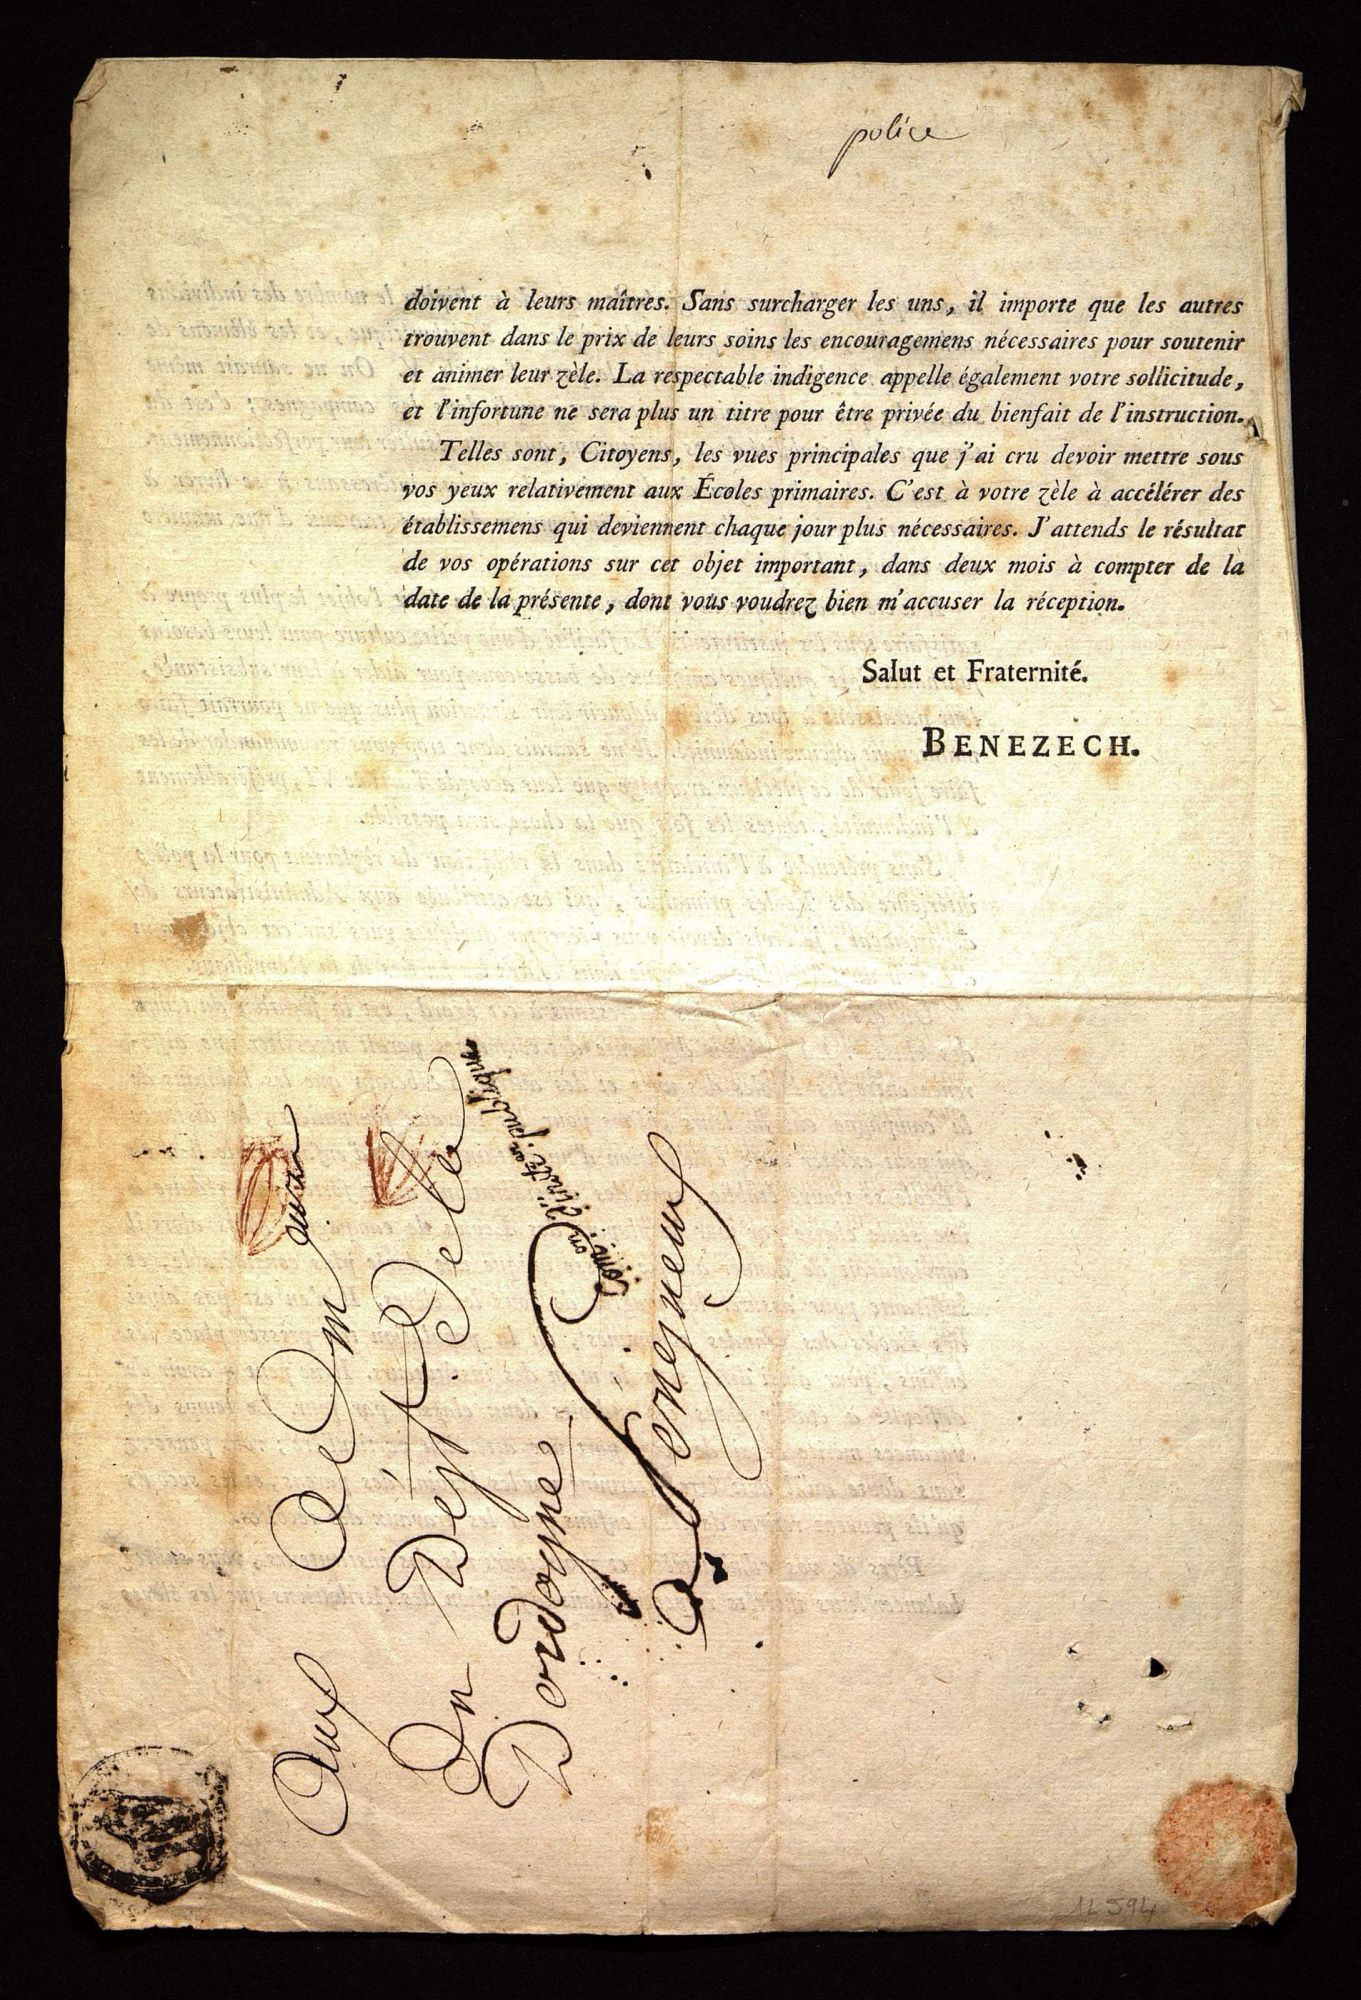 police
doivent à leurs maîtres. Sans surcharger les uns, il importe que les autres
trouvent dans le prix de leurs soins les encouragemens nécessaires pour soutenir
et animer leur zèle. La respectable indigence appelle également votre sollicitude,
et l'infortune ne sera plus un titre pour être privée du bienfait de l'instruction.
Telles sont, Citoyens, les vues principales que j'ai cru devoir mettre sous
vos yeux relativement aux Écoles primaires. C'est à votre zèle à accélérer des
établissemens qui deviennent chaque jour plus nécessaires. J'attends le résultat
de vos opérations sur cet objet important, dans deux mois à compter de la
date de la présente, dont vous voudrez bien m'accuser la réception.
Salut et Fraternité.
BENEZECH.
Aux
Dn Dépt. De la
Dordogne
Comon. d'instron. publique
a Perigueux
1L 594